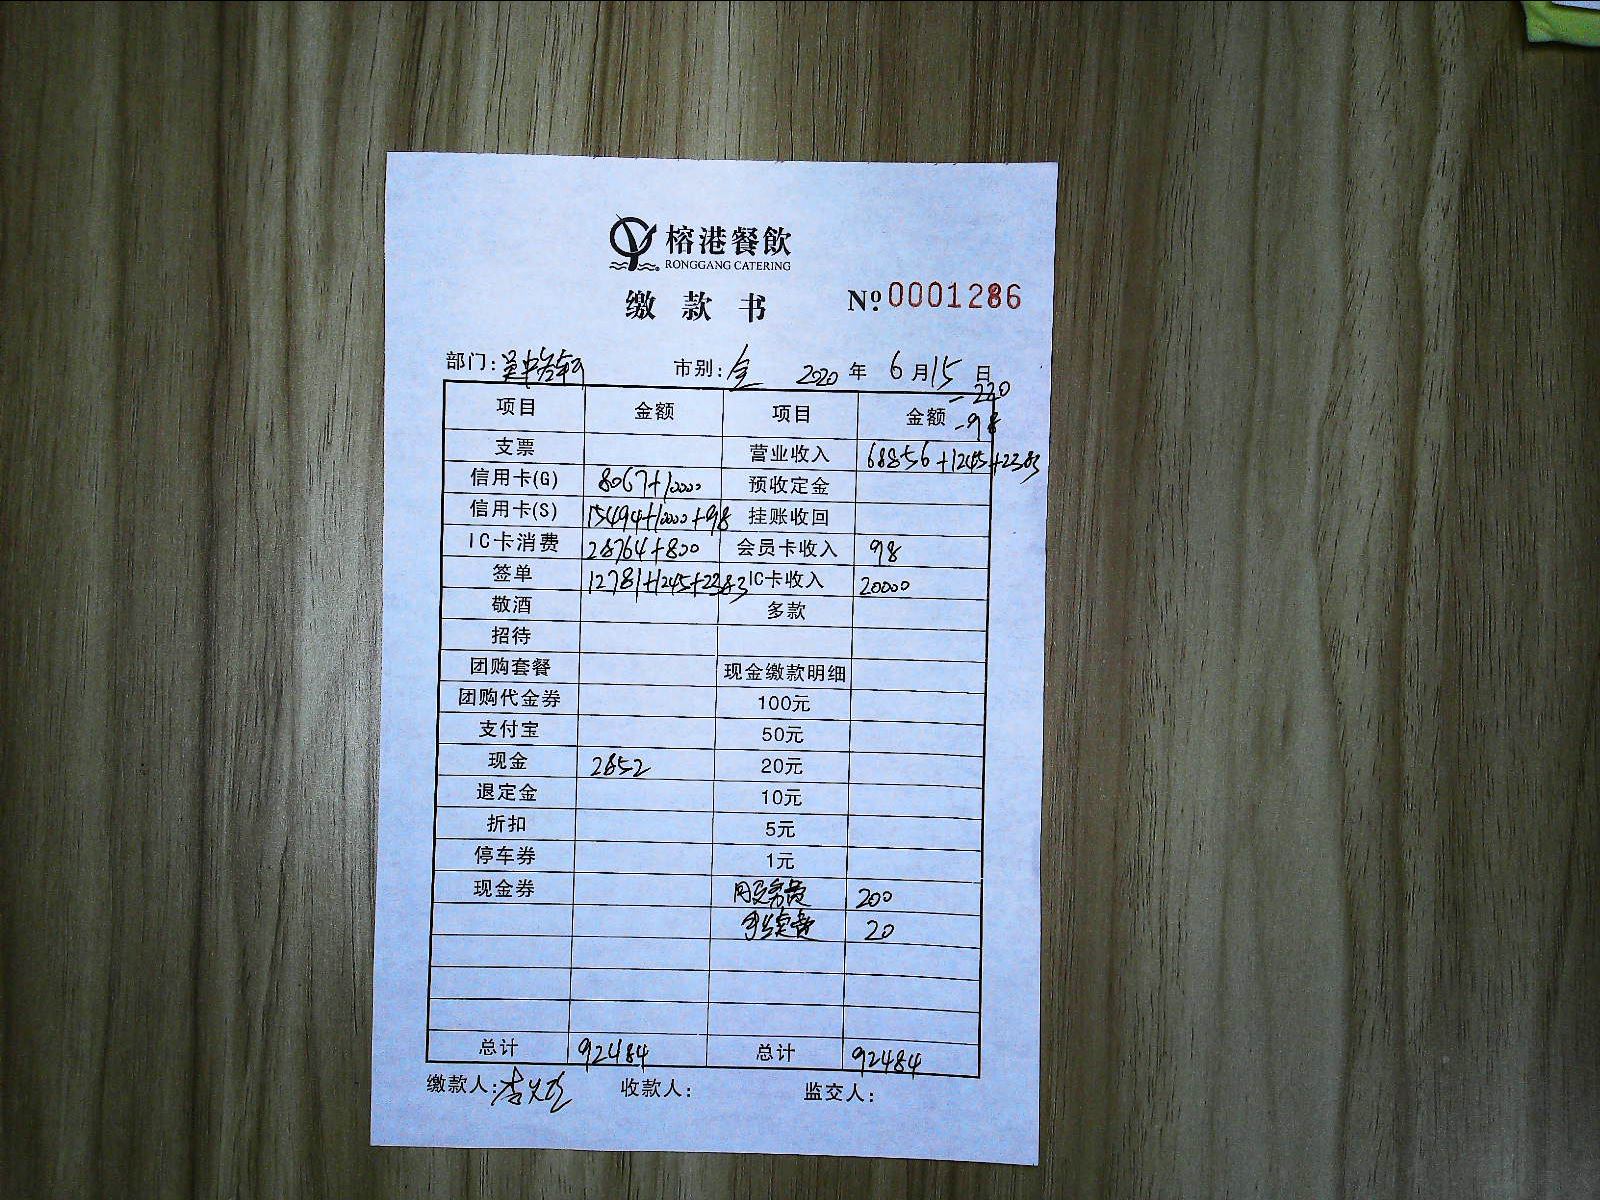 榕港餐飲
RONGGANG CATERING
缴款书 Nº 0001286
部门: 市别: 全 2020 年 6 月 15 日
-220
项目 金额 项目 金额 -98
支票 营业收入 68856+1245+2383
信用卡(G) 8067+10000 预收定金
信用卡(S) 15494+10000+98 挂账收回
IC卡消费 28764+800 会员卡收入 98
签单 12781+1245+2383 IC卡收入 20000
敬酒 多款
招待
团购套餐 现金缴款明细
团购代金券 100元
支付宝 50元
现金 2852 20元
退定金 10元
折扣 5元
停车券 1元
现金券 200
20
总计 92484 总计 92484
缴款人: 收款人: 监交人: